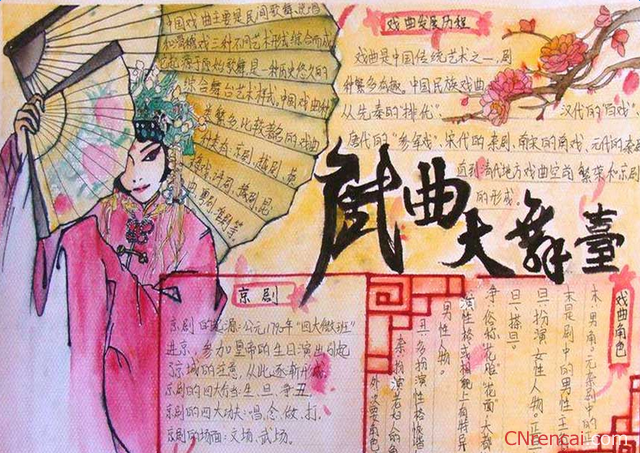 中国戏曲主要是民间歌舞、说唱
和滑稽戏三种不同艺术形式综合而成
它起源于原始歌舞,是一种历史悠久的
综合舞台艺术样式,中国戏曲种
类繁多比较著名的戏曲
京剧、越剧
戏曲发展历程
戏曲是中国传统艺术之一,剧
种繁多有趣。中国民族戏曲
从先秦的“排代”
汉代的“百戏”、
唐代的“参军戏”、宋代的杂剧、南宋的南戏、元代的杂剧
直到清代地方戏曲空前繁荣和京剧
的形成。
戏曲大舞臺
京剧
京剧的起源:公元1790年“四大徽班”
进京,参加皇帝的生日演出引起
了京城的注意,从此逐渐形成
京剧的四大行当:生、旦、净、丑
京剧的四大功夫:唱、念、做、打,
京剧的场面:文场、武场。
戏曲角色
末:男角,元杂剧中的正
末是剧中的男性主
旦:扮演女性人物,正
旦、搽旦。
净:俗称“花脸”“花面”大都
演性格或相貌上有特异
男性人物。
丑:多扮演性格诙谐
外:次要角色
CNrencai.com